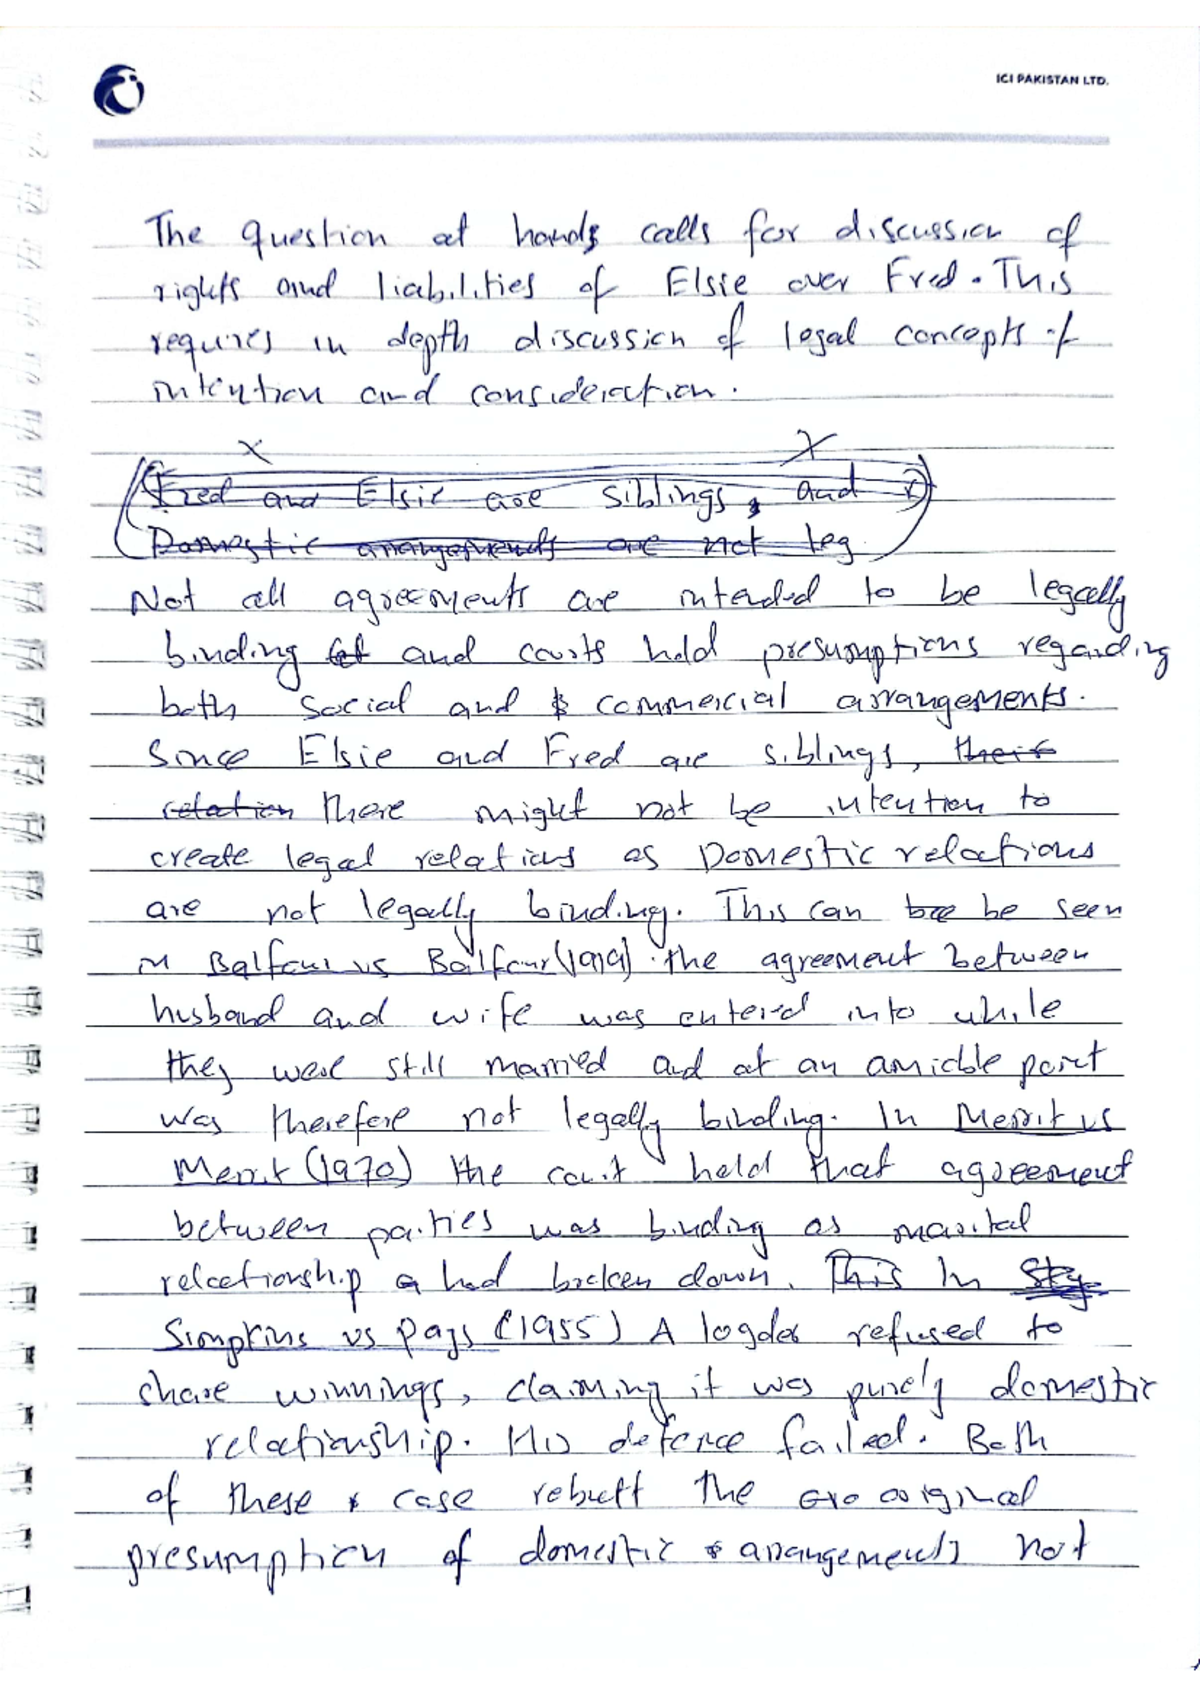 ICI PAKISTAN LTD.
The question at hands calls for discussion of
rights and liabilities of Elsie over Fred. This
requires in depth discussion of legal concepts of
intention and consideration.
x x
Fred and Elsie are siblings, and
Domestic arrangements are not leg
Not all agreements are intended to be legally
binding and courts hold presumptions regarding
both social and commercial arrangements.
Since Elsie and Fred are siblings, their
relation there might not be intention to
create legal relations as Domestic relations
are not legally binding. This can be be seen
in Balfour vs Balfour (1919). the agreement between
husband and wife was entered into while
they were still married and at an amicble point
was therefore not legally binding. In Merrit vs
Merrit (1970) the court held that agreement
between parties was binding as marital
relationship had broken down. This In
Simpkins vs pays (1955) A logder refused to
share winnings, claiming it was purely domestic
relationship. His defence failed. Both
of these case rebutt the original
presumption of domestic arrangements not